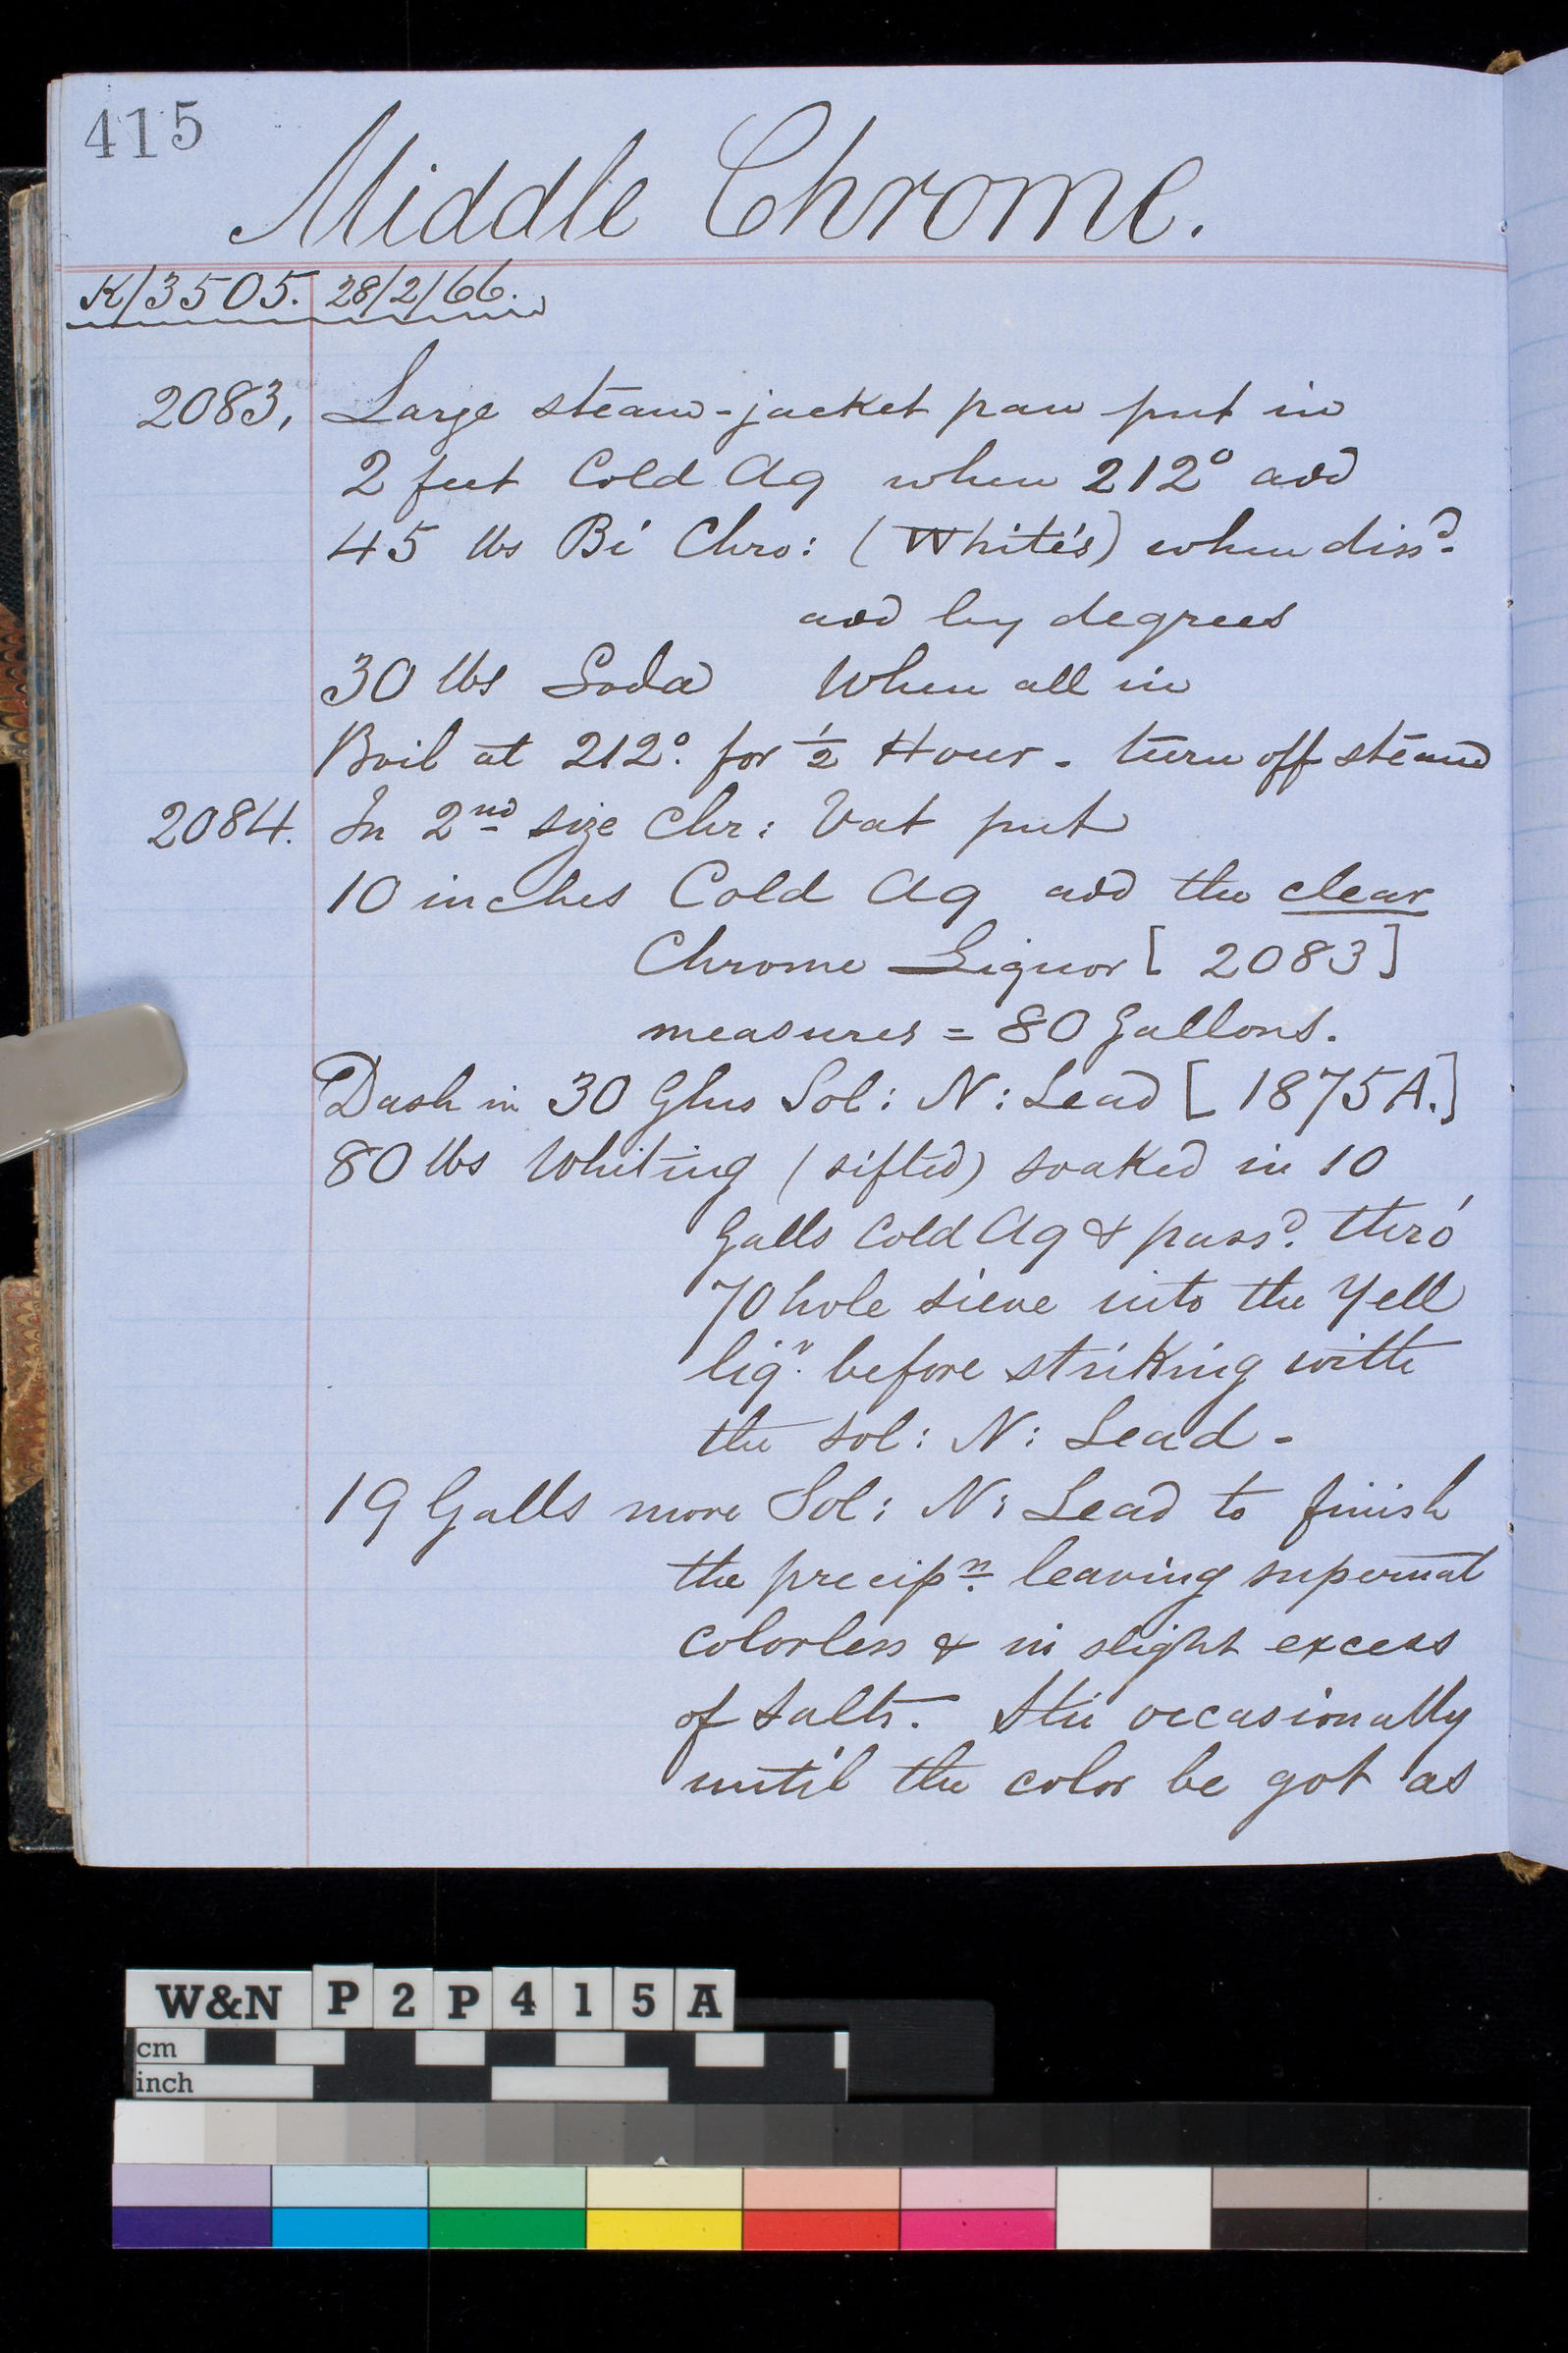 415
Middle Chrome.
K/3505. 28/2/66.
2083, Large steam-jacket pan put in
2 feet Cold Aq when 212° add
45 lbs Bi Chro: (White's) when dissd.
add by degrees
30 lbs Soda When all in
Boil at 212°. for ½ Hour - turn off steam
2084. In 2nd size Chr: Vat put
10 inches Cold Aq add the clear
Chrome Liquor [2083]
measures = 80 Gallons.
Dash in 30 Glns Sol: N: Lead [1875A.]
80 lbs Whiting (sifted) soaked in 10
Galls Cold Aq & passd. thro'
70 hole sieve into the Yell
liqr. before striking with
the Sol: N: Lead -
19 Galls more Sol: N: Lead to finish
the precipn. leaving supernat
colorless & in slight excess
of Salts. Stir occasionally
until the color be got as
W&N P2P415A
cm
inch